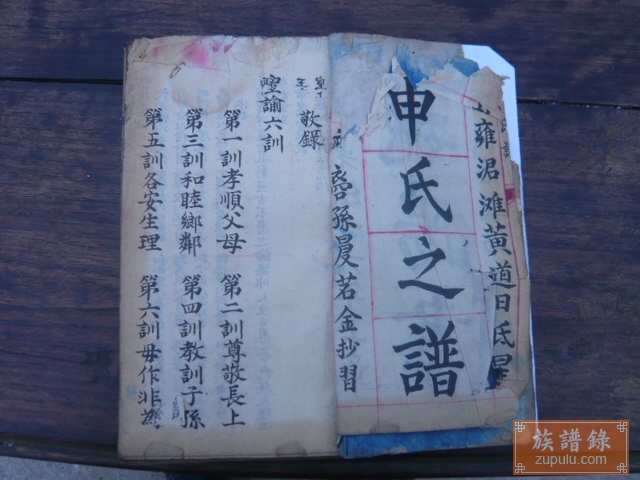 雍涒滩黄道日氐星
申氏之譜
裔孫茗金抄習
敬錄
聖諭六訓
第一訓孝順父母 第二訓尊敬長上
第三訓和睦鄉鄰 第四訓教訓子孫
第五訓各安生理 第六訓毋作非為
族譜錄
zupulu.com